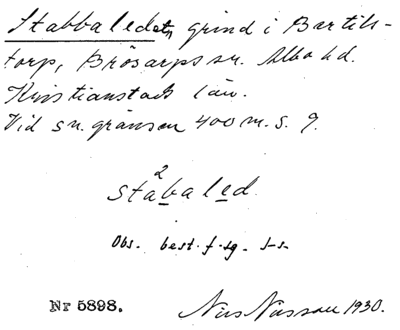 Stabbaledet, grind i Bartils-
torp, Brösarps sn. Albo hd.
Kristianstads län.
Vid sn. gränsen 400 m. s. 9.
2
stabaled
Obs. best. f. sg.
Nr 5898.
Nils Nilsson 1930.